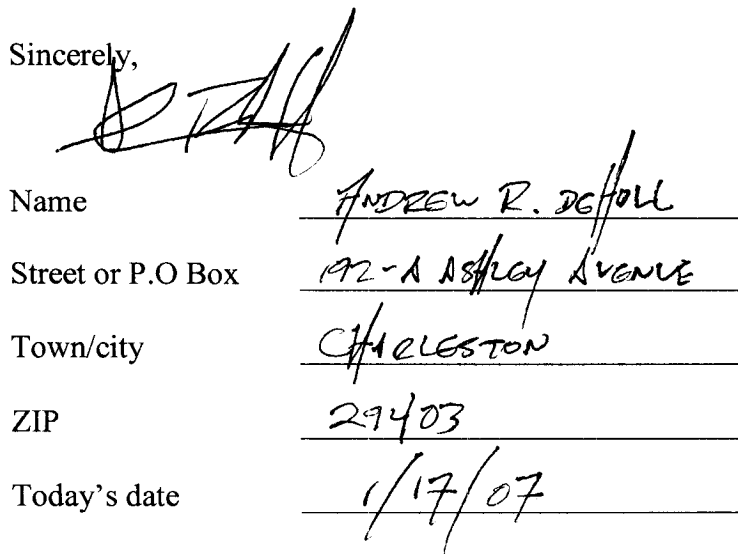 Sincerely,
Name ANDREW R. DEHOLL
Street or P.O Box 192-A ASHLEY AVENUE
Town/city CHARLESTON
ZIP 29403
Today's date 1/17/07